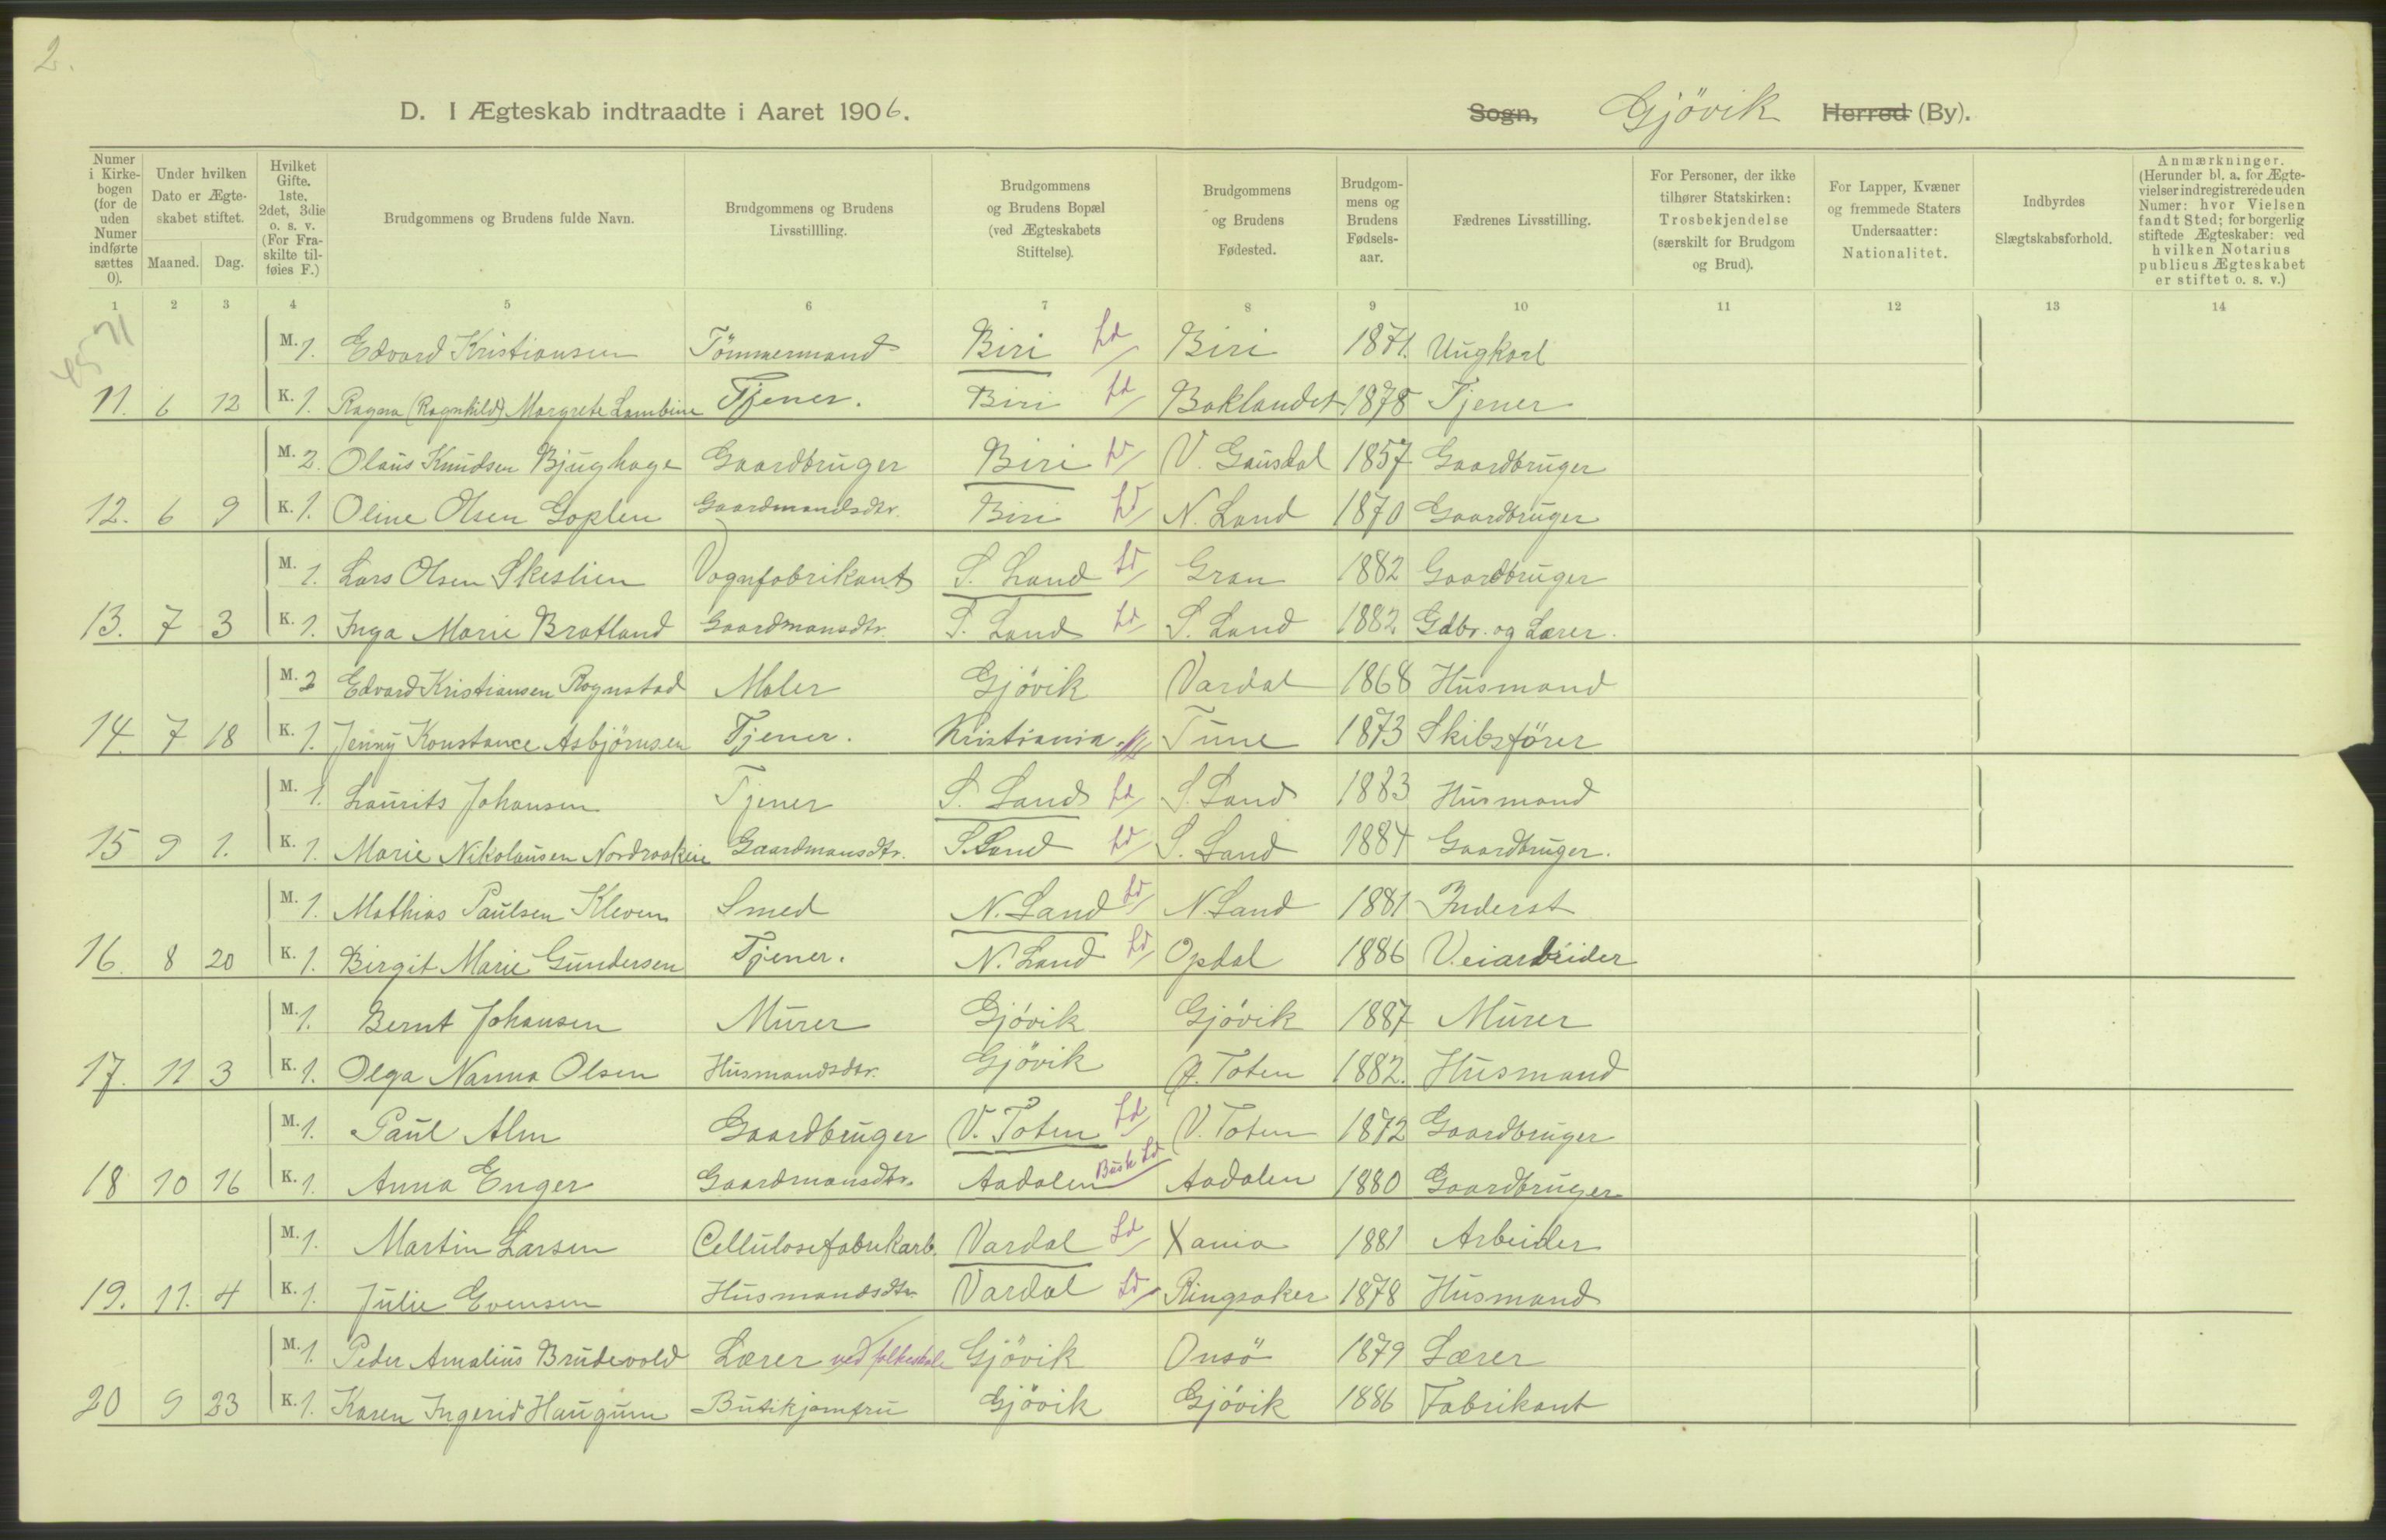 2.
D. I Ægteskab indtraadte i Aaret 1906.
Sogn, Gjövik Herred (By).
Numer i Kirkebogen (for de uden Numer indførte sættes 0).
Under hvilken Dato er Ægteskabet stiftet.
Maaned. Dag.
Hvilket Gifte. 1ste, 2det, 3die o. s. v. (For Fraskilte tilføies F.)
Brudgommens og Brudens fulde Navn.
Brudgommens og Brudens Livsstillling.
Brudgommens og Brudens Bopæl (ved Ægteskabets Stiftelse).
Brudgommens og Brudens Fødested.
Brudgommens og Brudens Fødselsaar.
Fædrenes Livsstilling.
For Personer, der ikke tilhører Statskirken: Trosbekjendelse (særskilt for Brudgom og Brud).
For Lapper, Kvæner og fremmede Staters Undersaatter: Nationalitet.
Indbyrdes Slægtskabsforhold.
Anmærkninger. (Herunder bl. a. for Ægtevielser indregistrerede uden Numer: hvor Vielsen fandt Sted; for borgerlig stiftede Ægteskaber: ved hvilken Notarius publicus Ægteskabet er stiftet o. s. v.)
1 2 3 4 5 6 7 8 9 10 11 12 13 14
M. 1. Edvard Kristiansen Tömmermand Biri Ld Biri 1871. Ungkarl
11. 6 12 K. 1. Ragna (Ragnhild) Margrete Lambine Tjener. Biri Ld Baklandet 1878 Tjener
M. 2. Olaus Knudsen Bjughage Gaardbruger Biri Ld V. Gausdal 1857 Gaardbruger
12. 6 9 K. 1. Oline Olsen Goplen Gaardmandsdtr. Biri Ld N. Land 1870 Gaardbruger
M. 1. Lars Olsen Skeslien Vognfabrikant S. Land Ld Gran 1882 Gaardbruger
13. 7 3 K. 1. Inga Marie Bratland Gaardmansdtr. S. Land Ld S. Land 1882. Gdbr. og Lærer.
M. 2 Edvard Kristiansen Rognstad Maler Gjövik Vardal 1868 Husmand
14. 7 18 K. 1. Jenny Konstance Asbjörnsen Tjener. Kristiania Tune 1873 Skibsförer
M. 1. Laurits Johansen Tjener S. Land Ld S. Land 1883 Husmand
15 9 1. K. 1. Marie Nikolausen Nordraakeie Gaardmansdtr. S. Land Ld S. Land 1884 Gaardbruger.
M. 1. Mathias Paulsen Kleven Smed N. Land Ld N. Land 1881 Inderst
16. 8 20 K. 1. Birgit Marie Gundersen Tjener. N. Land Ld Opdal 1886 Veiarbeider
M. 1. Bernt Johansen Murer Gjövik Gjövik 1887 Murer
17. 11 3 K. 1. Olga Nanna Olsen Husmandsdtr. Gjövik Ø. Toten 1882. Husmand
M. 1. Paul Alm Gaardbruger V. Toten Ld V. Toten 1872 Gaardbruger
18 10 16 K. 1. Anna Enger Gaardmansdtr. Aadalen Busk Ld Aadalen 1880 Gaardbruger
M. 1. Martin Larsen Cellulosefabrikarb. Vardal Ld Xania 1881 Arbeider
19. 11. 4 K. 1. Julie Evensen Husmandsdtr. Vardal Ld Ringsaker 1878 Husmand
M. 1. Peder Amalius Brudevold Lærer ved folkeskole Gjövik Onsö 1879 Lærer
20 9 23 K. 1. Karen Ingerid Haugum Butikjomfru Gjövik Gjövik 1886 Fabrikant